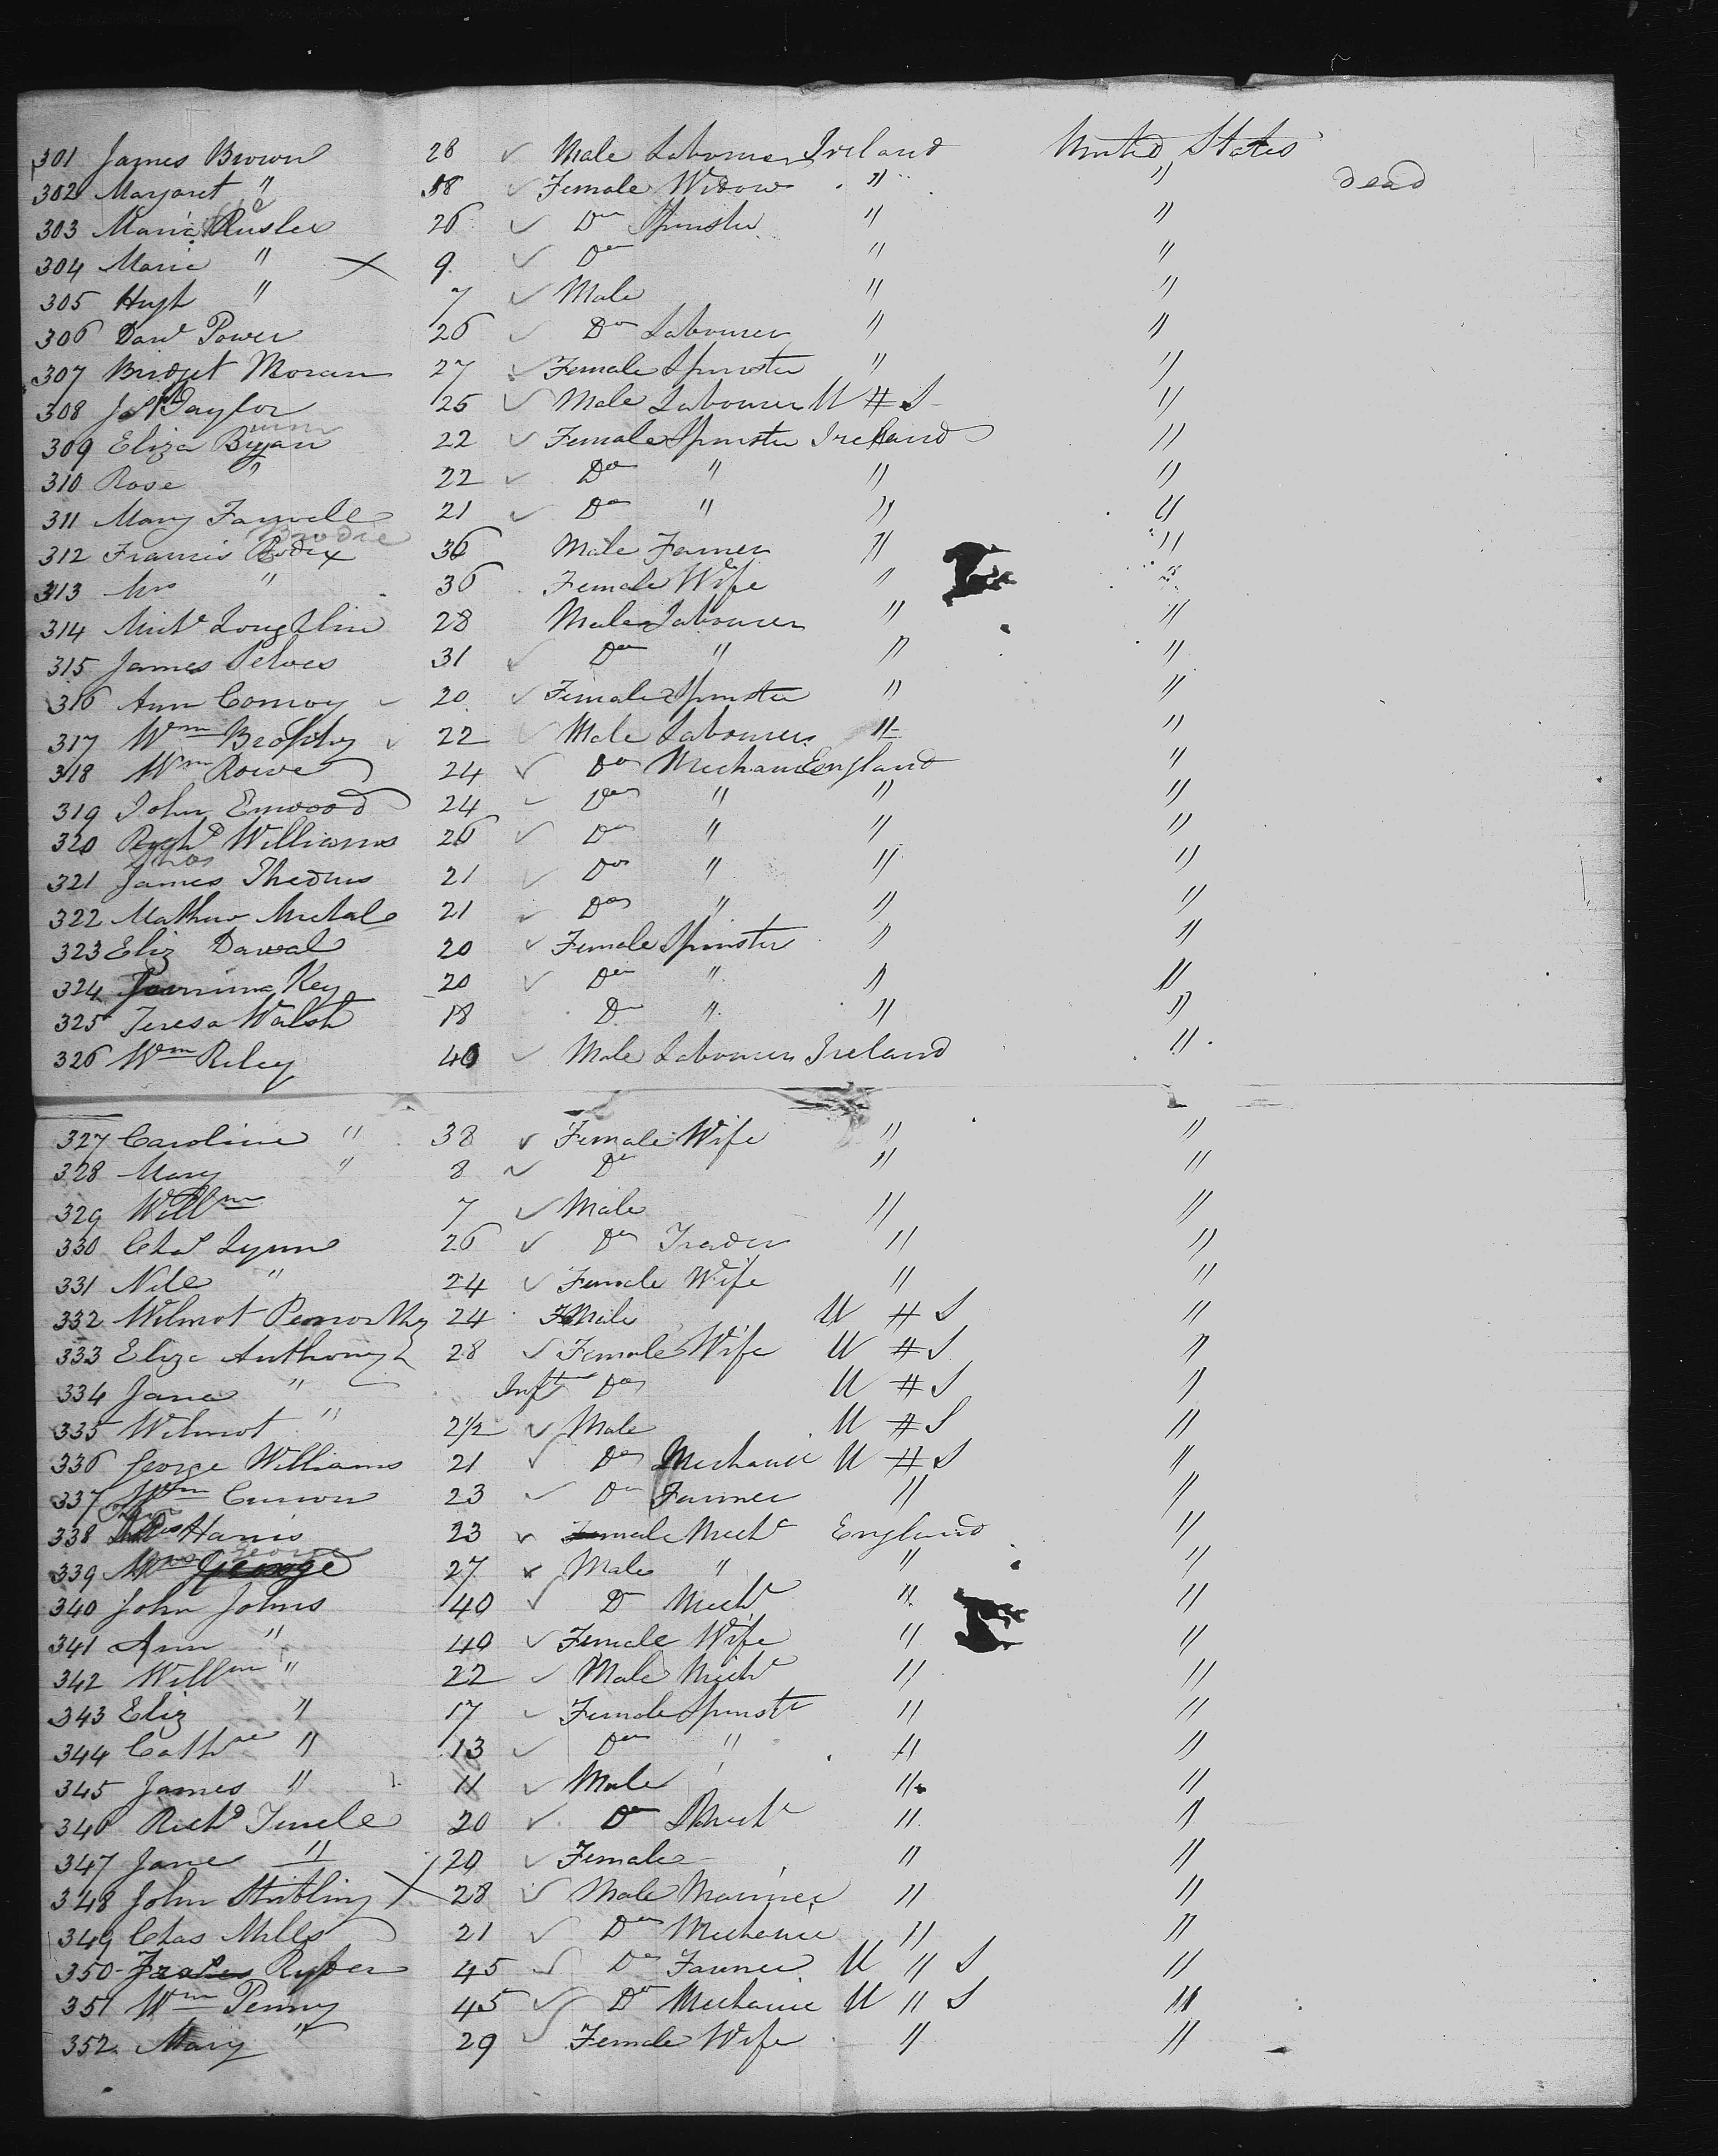 301 James Brown 28 ✓ Male Labourer Ireland United States
302 Margaret " 58 ✓ Female Widow " " dead
303 Maria 26 ✓ Do Spinster " "
304 Maria " X 9 ✓ Do " "
305 Hugh " 7 ✓ Male " "
306 Danl Power 26 ✓ Do Labourer " "
307 Bridget Moran 27 ✓ Female Spinster " "
308 Jos Taylor 25 ✓ Male Labourer U # S "
309 Eliza Bryan 22 ✓ Female Spinster Ireland "
310 Rose " 22 ✓ Do " " "
311 Mary Farrell 21 ✓ Do " " "
Brodie
312 Francis 36 Male Farmer " "
313 Mrs " 36 Female Wife " "
314 Michl Loughlin 28 Male Labourer " "
315 James 31 ✓ Do " " "
316 Ann Conroy 20 ✓ Female Spinster " "
317 Wm Brophy ✓ 22 ✓ Male Labourer " "
318 Wm Rowe 24 ✓ Do Mechanic England "
319 John Enwood 24 ✓ Do " " "
320 Richd Williams 26 ✓ Do " " "
Thos
321 James 21 ✓ Do " " "
322 Mathew 21 ✓ Do " " "
323 Eliz 20 ✓ Female Spinster " "
324 Key 20 ✓ Do " " "
325 Teresa Walsh 18 Do " " "
326 Wm Riley 40 ✓ Male Labourer Ireland "
327 Caroline " 38 ✓ Female Wife " "
328 Mary " 8 ✓ Do " "
329 Willm 7 ✓ Male " "
330 Chas Lynn 26 ✓ Do Trader " "
331 " 24 ✓ Female Wife " "
332 Wilmot 24 Male U # S "
333 Eliza Anthony 28 ✓ Female Wife U # S "
334 Jane " Inft Do U # S "
335 Wilmot " 2½ ✓ Male U # S "
336 George Williams 21 ✓ Do Mechanic U # S "
337 Wm Curnow 23 ✓ Do Farmer " "
338 Harris 23 ✓ male Mechc England "
George
339 George 27 Male " " "
340 John Johns 40 ✓ Do Mechc " "
341 Ann " 40 ✓ Female Wife " "
342 Willm " 22 ✓ Male Mechc " "
343 Eliz " 17 ✓ Female Spinstr " "
344 Cathne " 13 ✓ Do " " "
345 James " 11 ✓ Male " "
346 Richd 20 ✓ Do Mechc " "
347 Jane " 20 ✓ Female " "
348 John Stribling X 28 ✓ Male Mariner " "
349 Chas Mills 21 ✓ Do Mechanic " "
350 45 ✓ Do Farmer U " S "
351 Wm Penny 45 ✓ Do Mechanic U " S "
352 Mary " 29 ✓ Female Wife " "